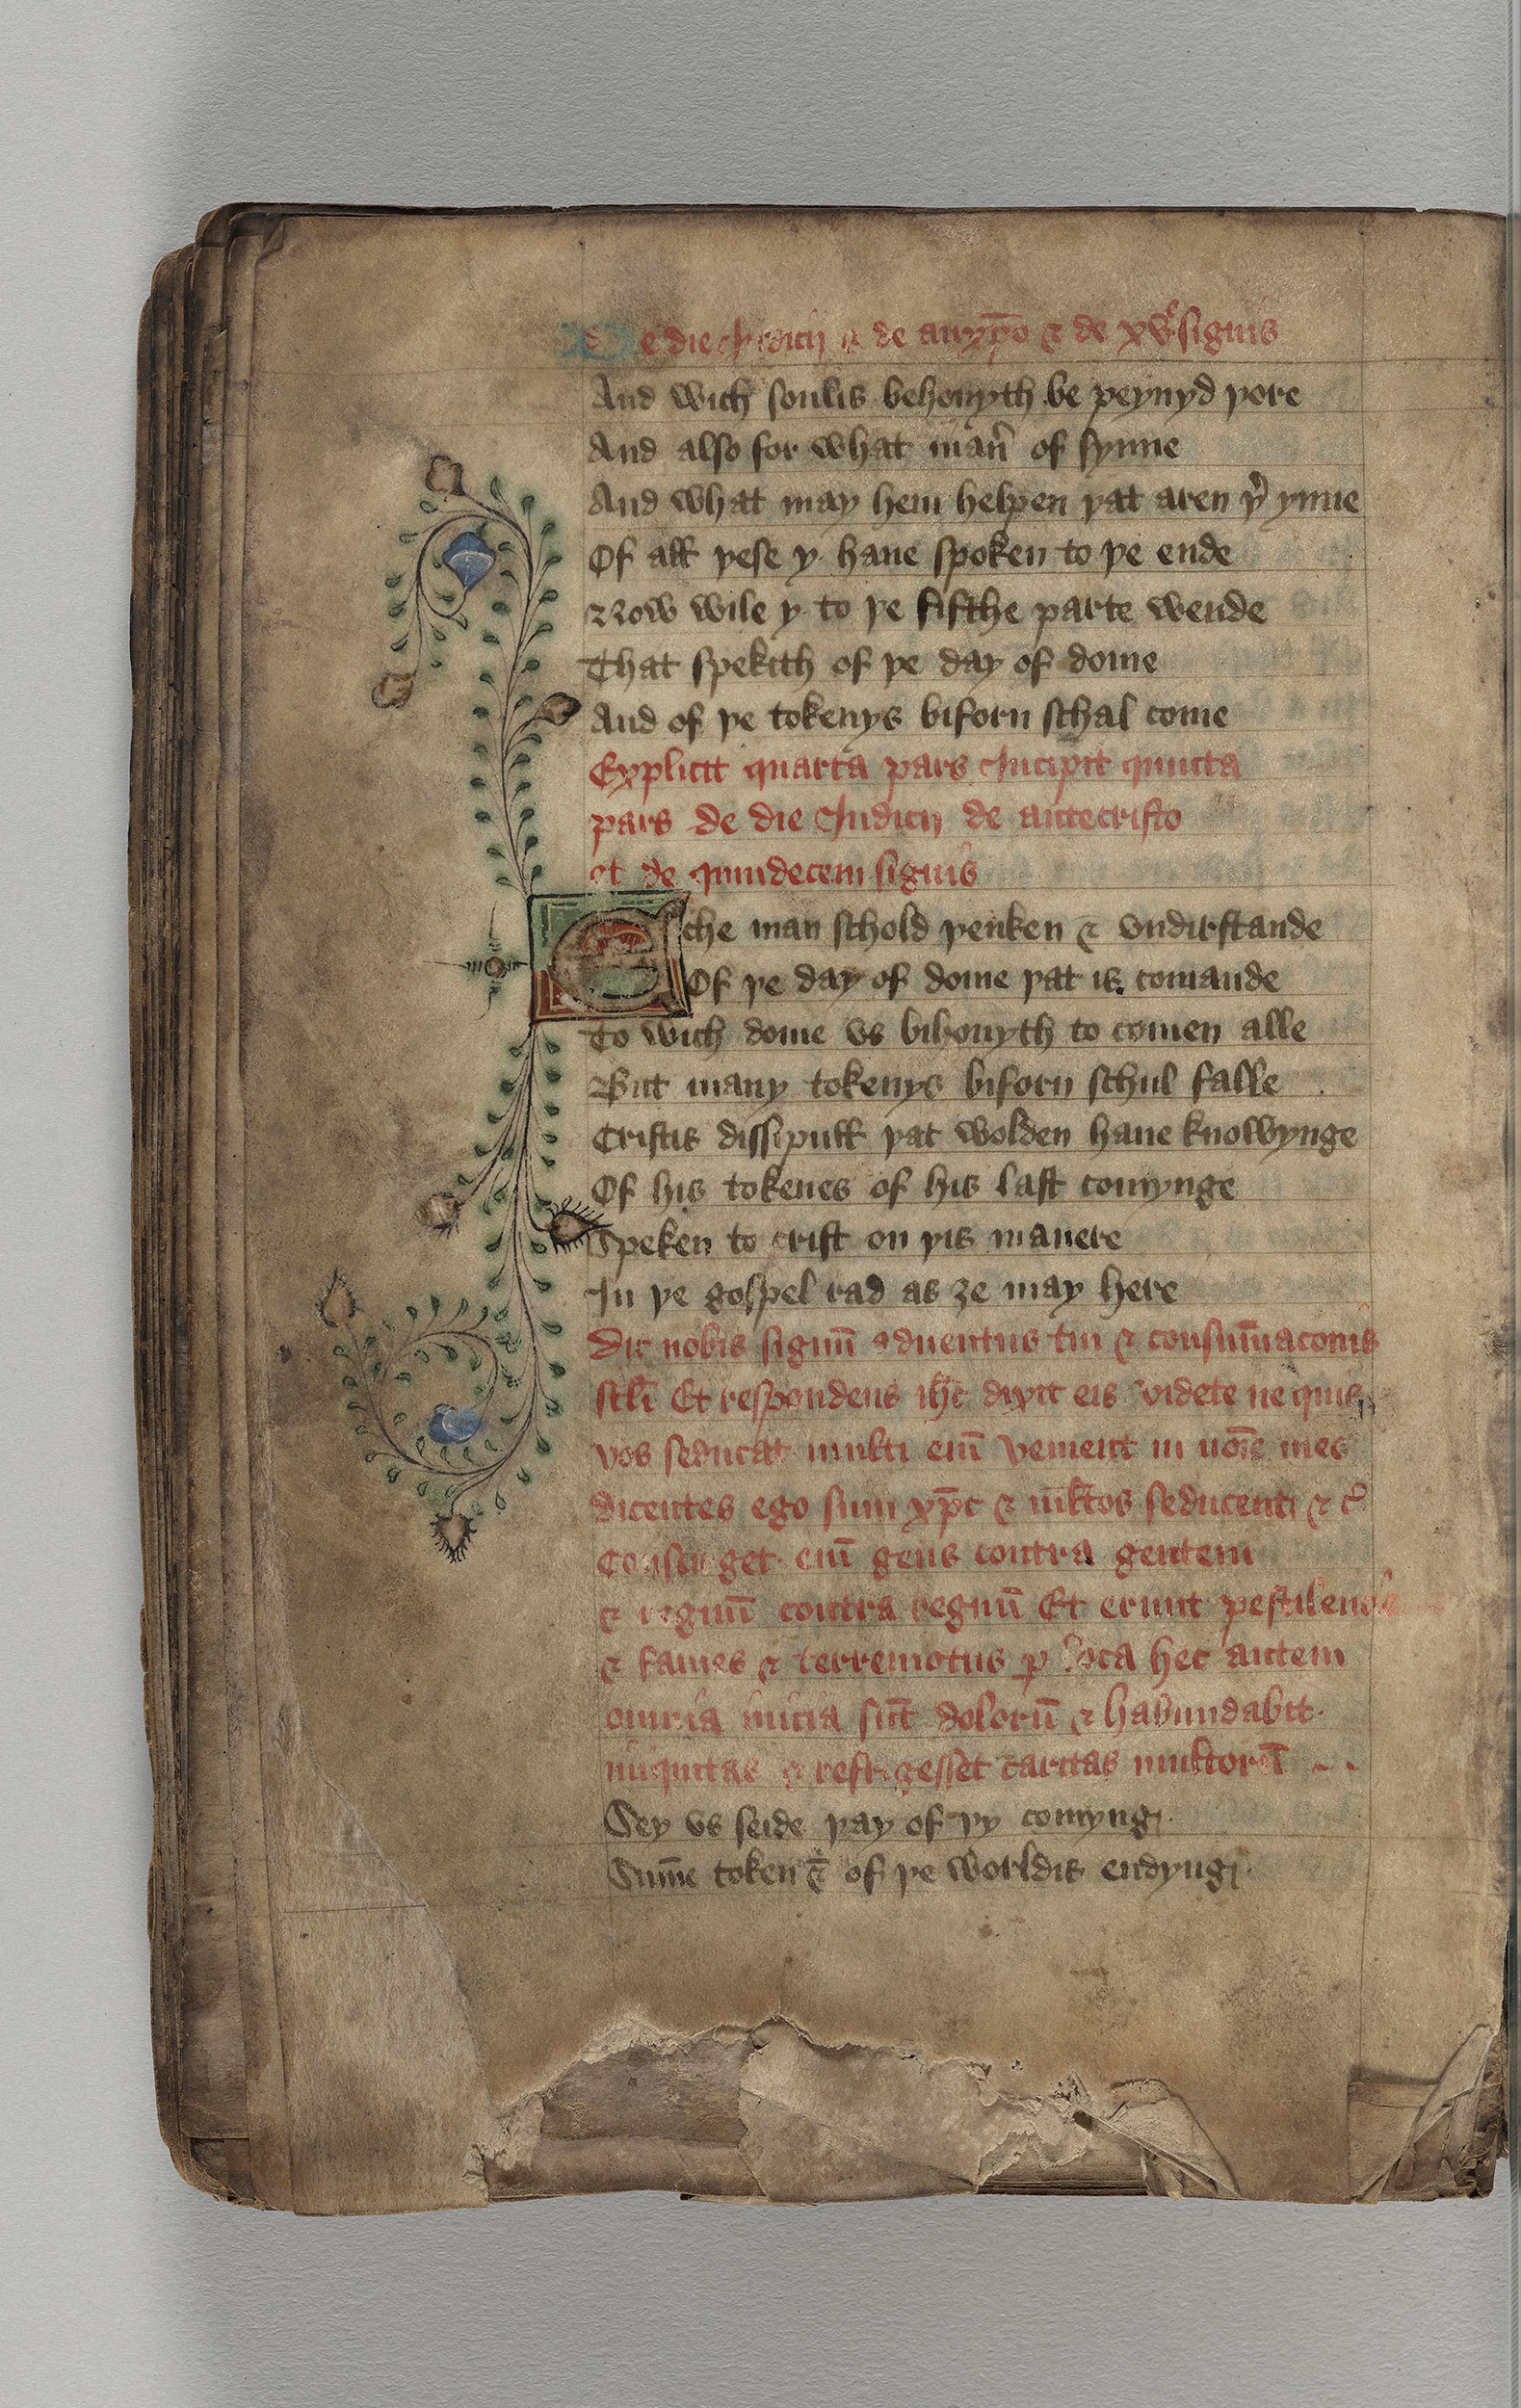 De die Iudicij & de anxp̄o & de xvͨ signis
And wich soulis behouyth be peynyd yore
And also for what man̉ of synne
And what may hem helpen yat aren yͬ ynne
Of all yese y haue spoken to ye ende
Now wile y to ye fifthe parte wende
That spekith of ye day of dome
And of ye tokenys biforn schal come
Explicit quarta pars Incipit quinta
pars de die Iudicij de antecristo
et de quindecem signis
Eche man schold yenken & vndirstande
Of ye day of dome yat is comande
To wich dome vs bihouyth to comen alle
But many tokenys biforn schul falle
Cristis dissipull yat wolden haue knowynge
Of his tokenes of his last comynge
Speken to crist on yis manere
In ye gospel rad as ȝe may here
Dic nobis signū aduentus tui & consūmaconis
scłi Et respondens ihc̄ dixit eis videte ne quis
vos seducat multi eni̅ venient in no̅ie meo
dicentes ego sum xp̄c & młtos seducent & cͬ
Consurget eni̅ gens contra gentem
& regnū contra regnū Et erunt pestilencie
& fames & terremotus ꝑ loca hec autem
omnia inicia su̅t dolorū & habundabit
iniquitas & refrigesset caritas multorū
Sey vs seide yay of yy comyng
Sum̄e token & of ye worldis endyng